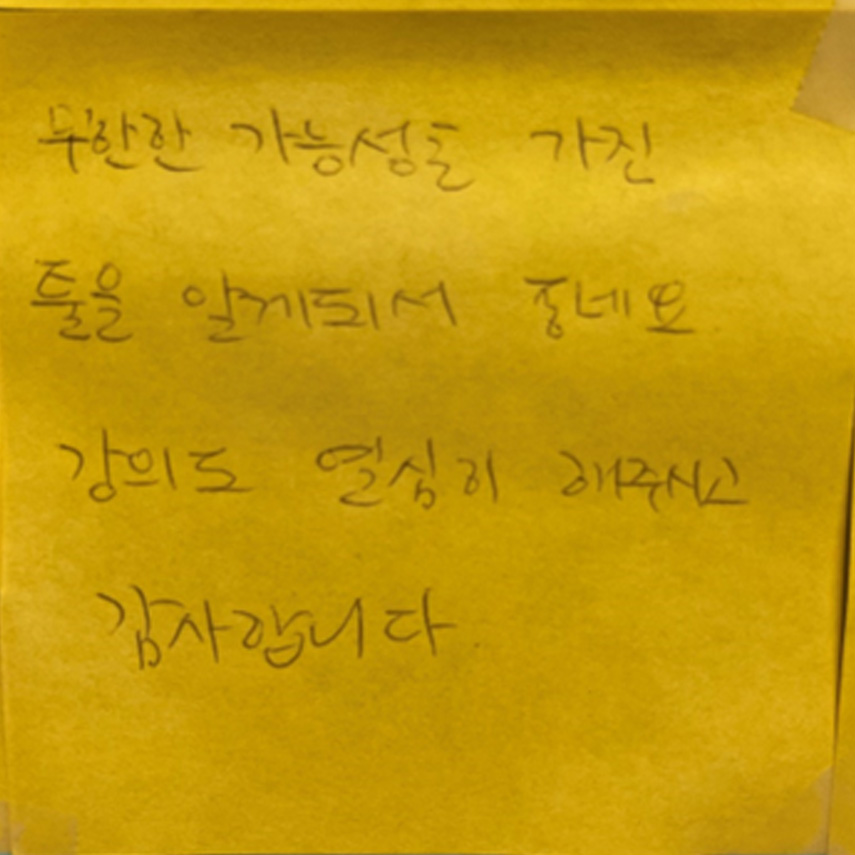 무한한 가능성을 가진
툴을 알게되서 좋네요
강의도 열심히 해주시고
감사합니다.